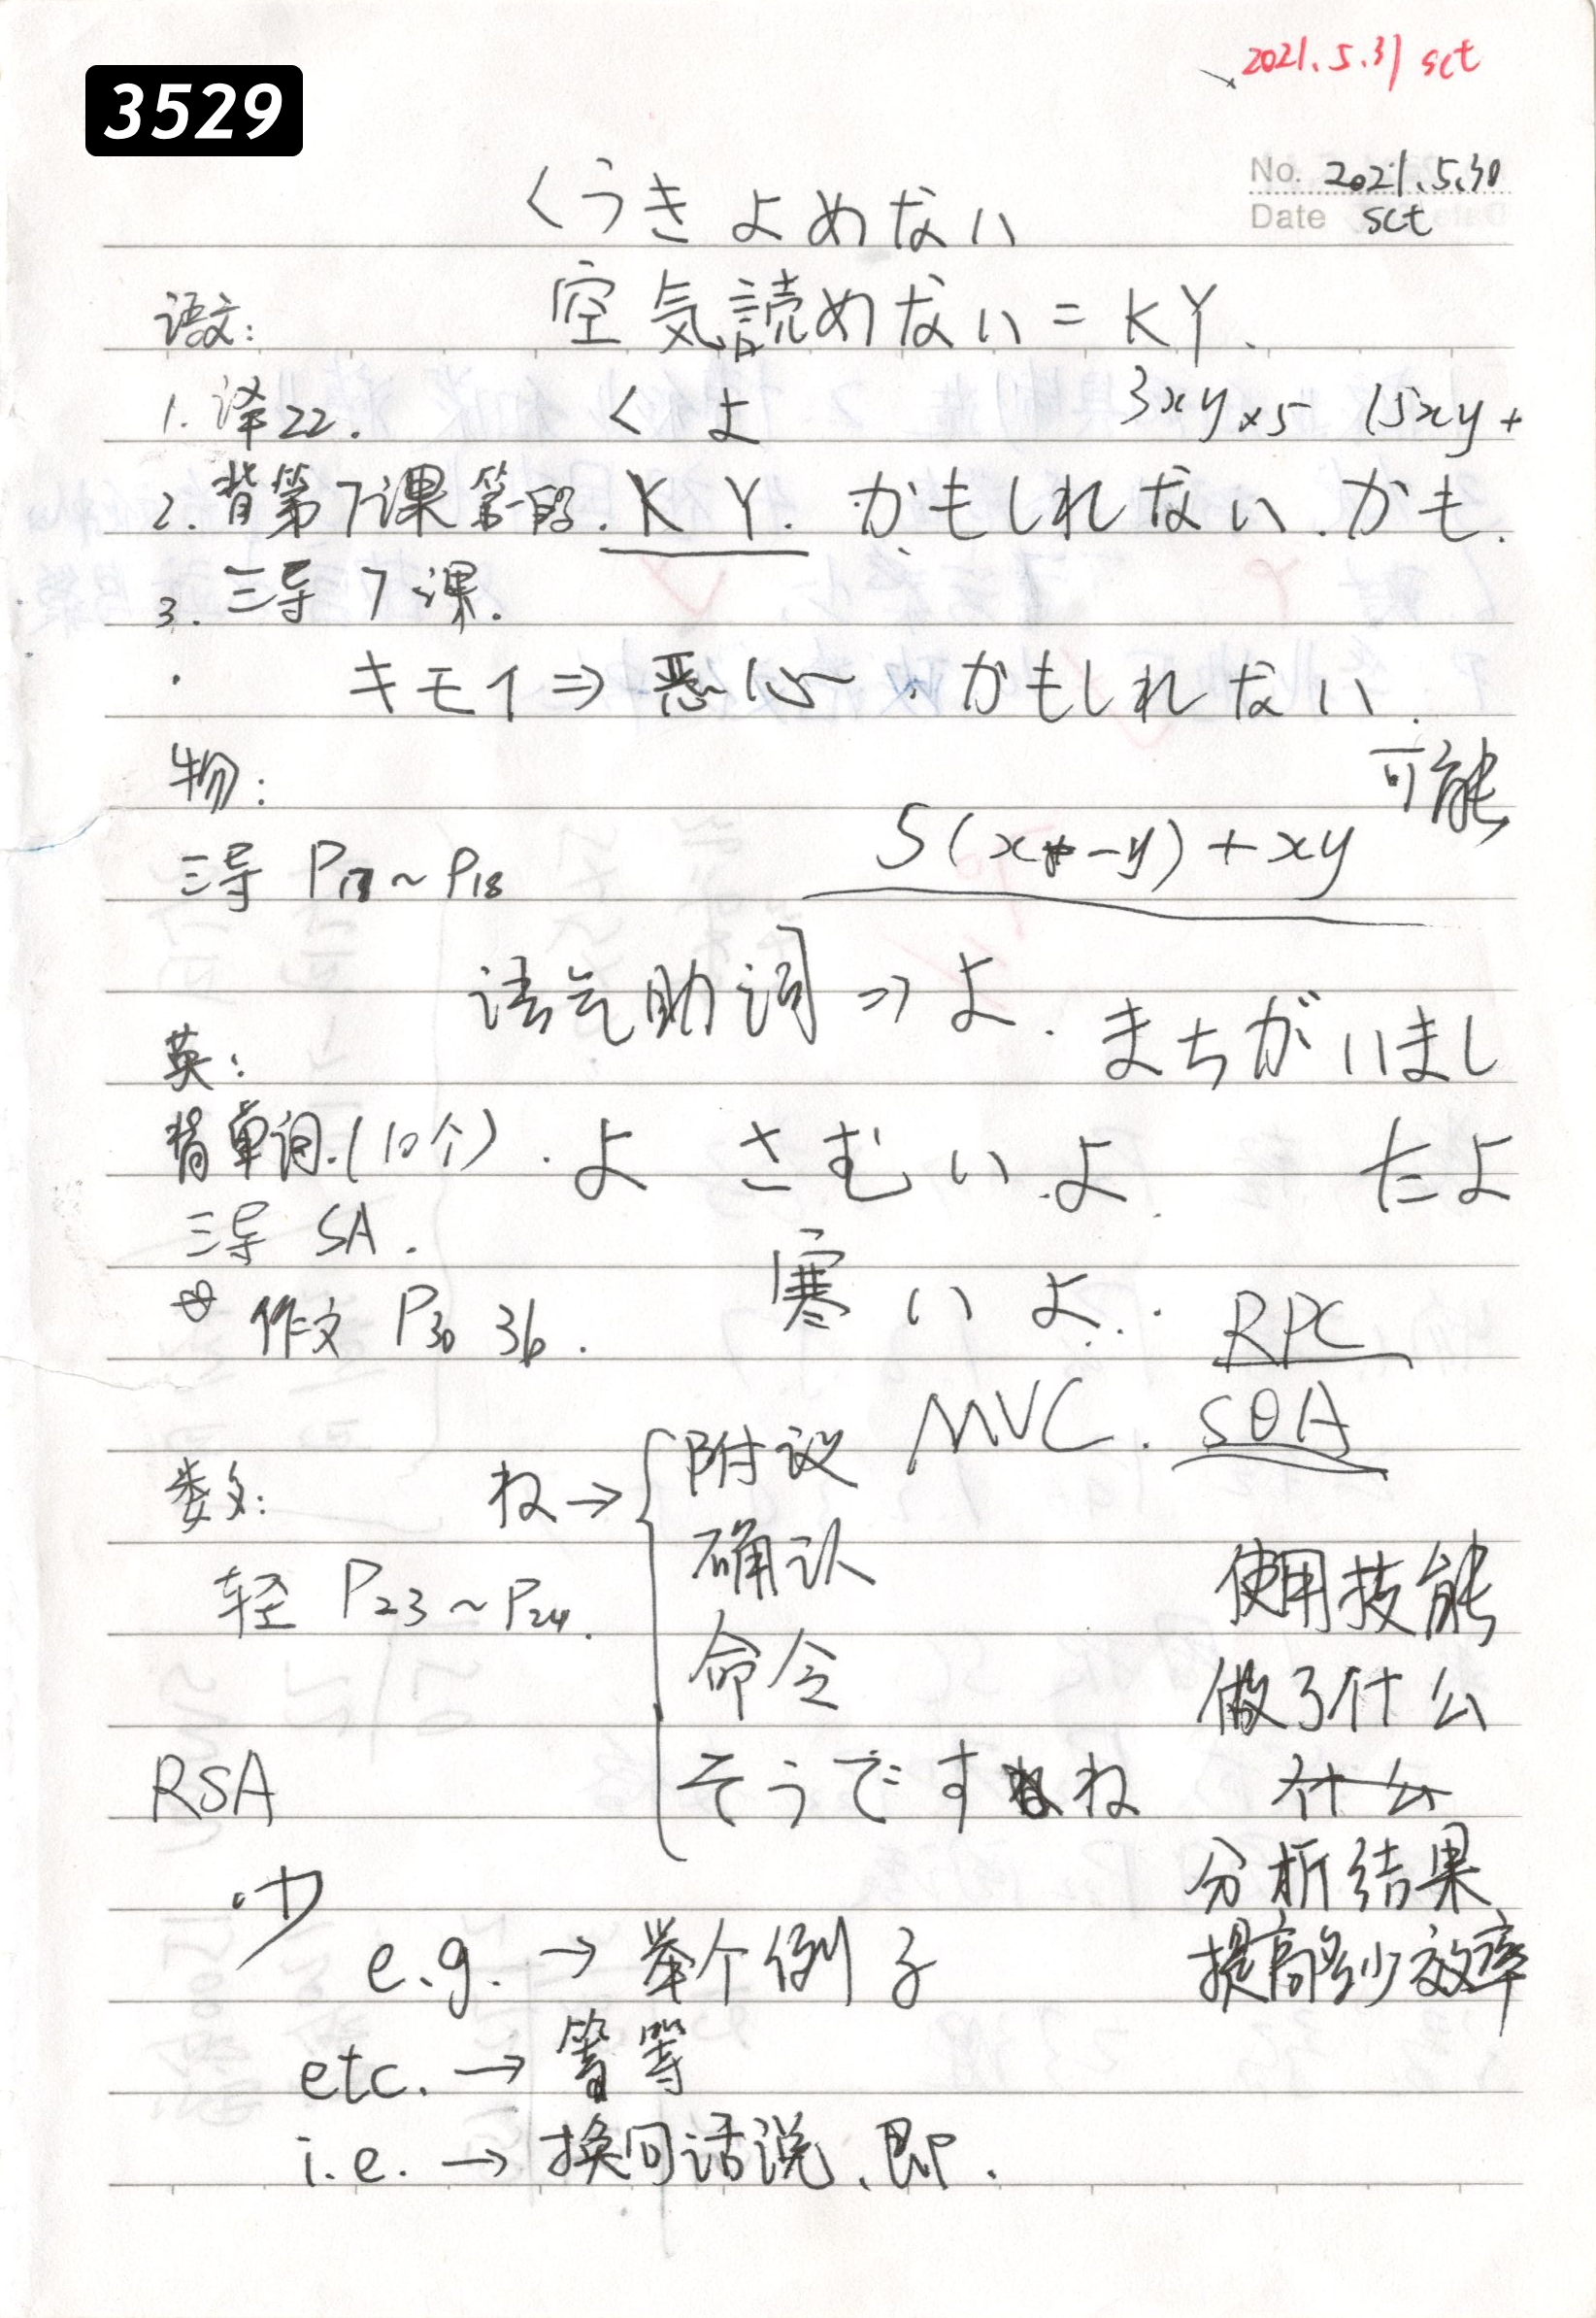 3529
2021.5.31 sct
No. 2021.5.30
Date sct
くうきよめない
语文:
空気読めない = KY.
1. 译22.
くよ
3xy×5 15xy+
2. 背第7课第一段.
KY.
かもしれない.かも.
3. 三导7课.
キモイ⇒悪心.かもしれない.
可能
物:
三导 P17~P18
5(x-y)+xy
语气助词]⇒よ.
まちがいまし
たよ
英:
背单词.(10个).
よ さむいよ.
三导 SA.
作文 P30 36.
寒いよ..
RPC
MVC. SOA
数:
ね→{附议
确认
命令
そうですね
轻 P23~P24.
使用技能
做了什么
什么
分析结果
提高多少效率
RSA
e.g. → 举个例子
etc. → 等等
i.e. → 换句话说、即.